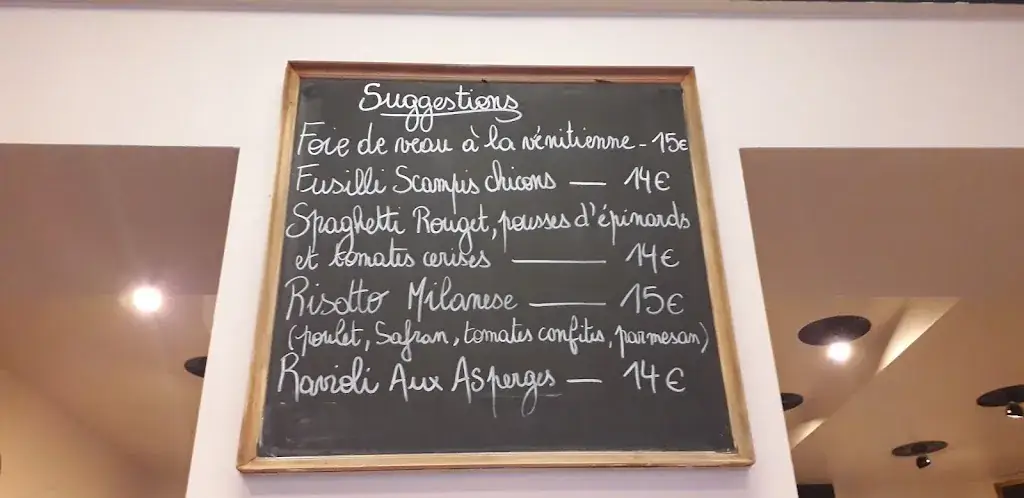 Suggestions
Foie de veau à la vénitienne - 15€
Fusilli Scampis chicons — 14€
Spaghetti Rouget, pousses d'épinards
et tomates cerises — 14€
Risotto Milanese — 15€
(poulet, Safran, tomates confites, parmesan)
Ravioli Aux Asperges — 14€